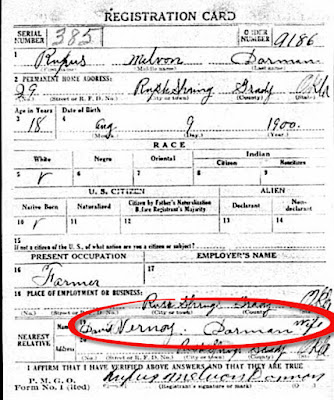 REGISTRATION CARD
SERIAL NUMBER 385 ORDER NUMBER 9186
1 Rufus Melvon Darman
(First name) (Middle name) (Last name)
2 PERMANENT HOME ADDRESS:
29 Rush Spring Grady Okla
(No.) (Street or R. F. D. No.) (City or town) (County) (State)
Age in Years Date of Birth
3 18 4 Aug 9 1900.
(Month.) (Day.) (Year.)
RACE
White Negro Oriental Indian
Citizen Noncitizen
5 6 7 8 9
U. S. CITIZEN ALIEN
Native Born Naturalized Citizen by Father's Naturalization Before Registrant's Majority Declarant Non-declarant
10 11 12 13 14
15
If not a citizen of the U. S., of what nation are you a citizen or subject?
PRESENT OCCUPATION EMPLOYER'S NAME
16 Farmer 17
18 PLACE OF EMPLOYMENT OR BUSINESS:
Rush Springs Grady Okla
(No.) (Street or R. F. D. No.) (City or town) (County) (State)
NEAREST RELATIVE
Name 19 Vernoy Darman wife
Address 20 Grady Okla
I AFFIRM THAT I HAVE VERIFIED ABOVE ANSWERS AND THAT THEY ARE TRUE
P. M. G. O.
Form No. 1 (Red)
Rufus Melvon Darman
(Registrant's signature or mark)